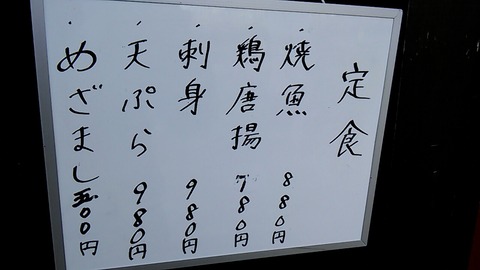 定食
・焼魚 880円
・鶏唐揚 780円
・刺身 980円
・天ぷら 980円
・めざまし 500円